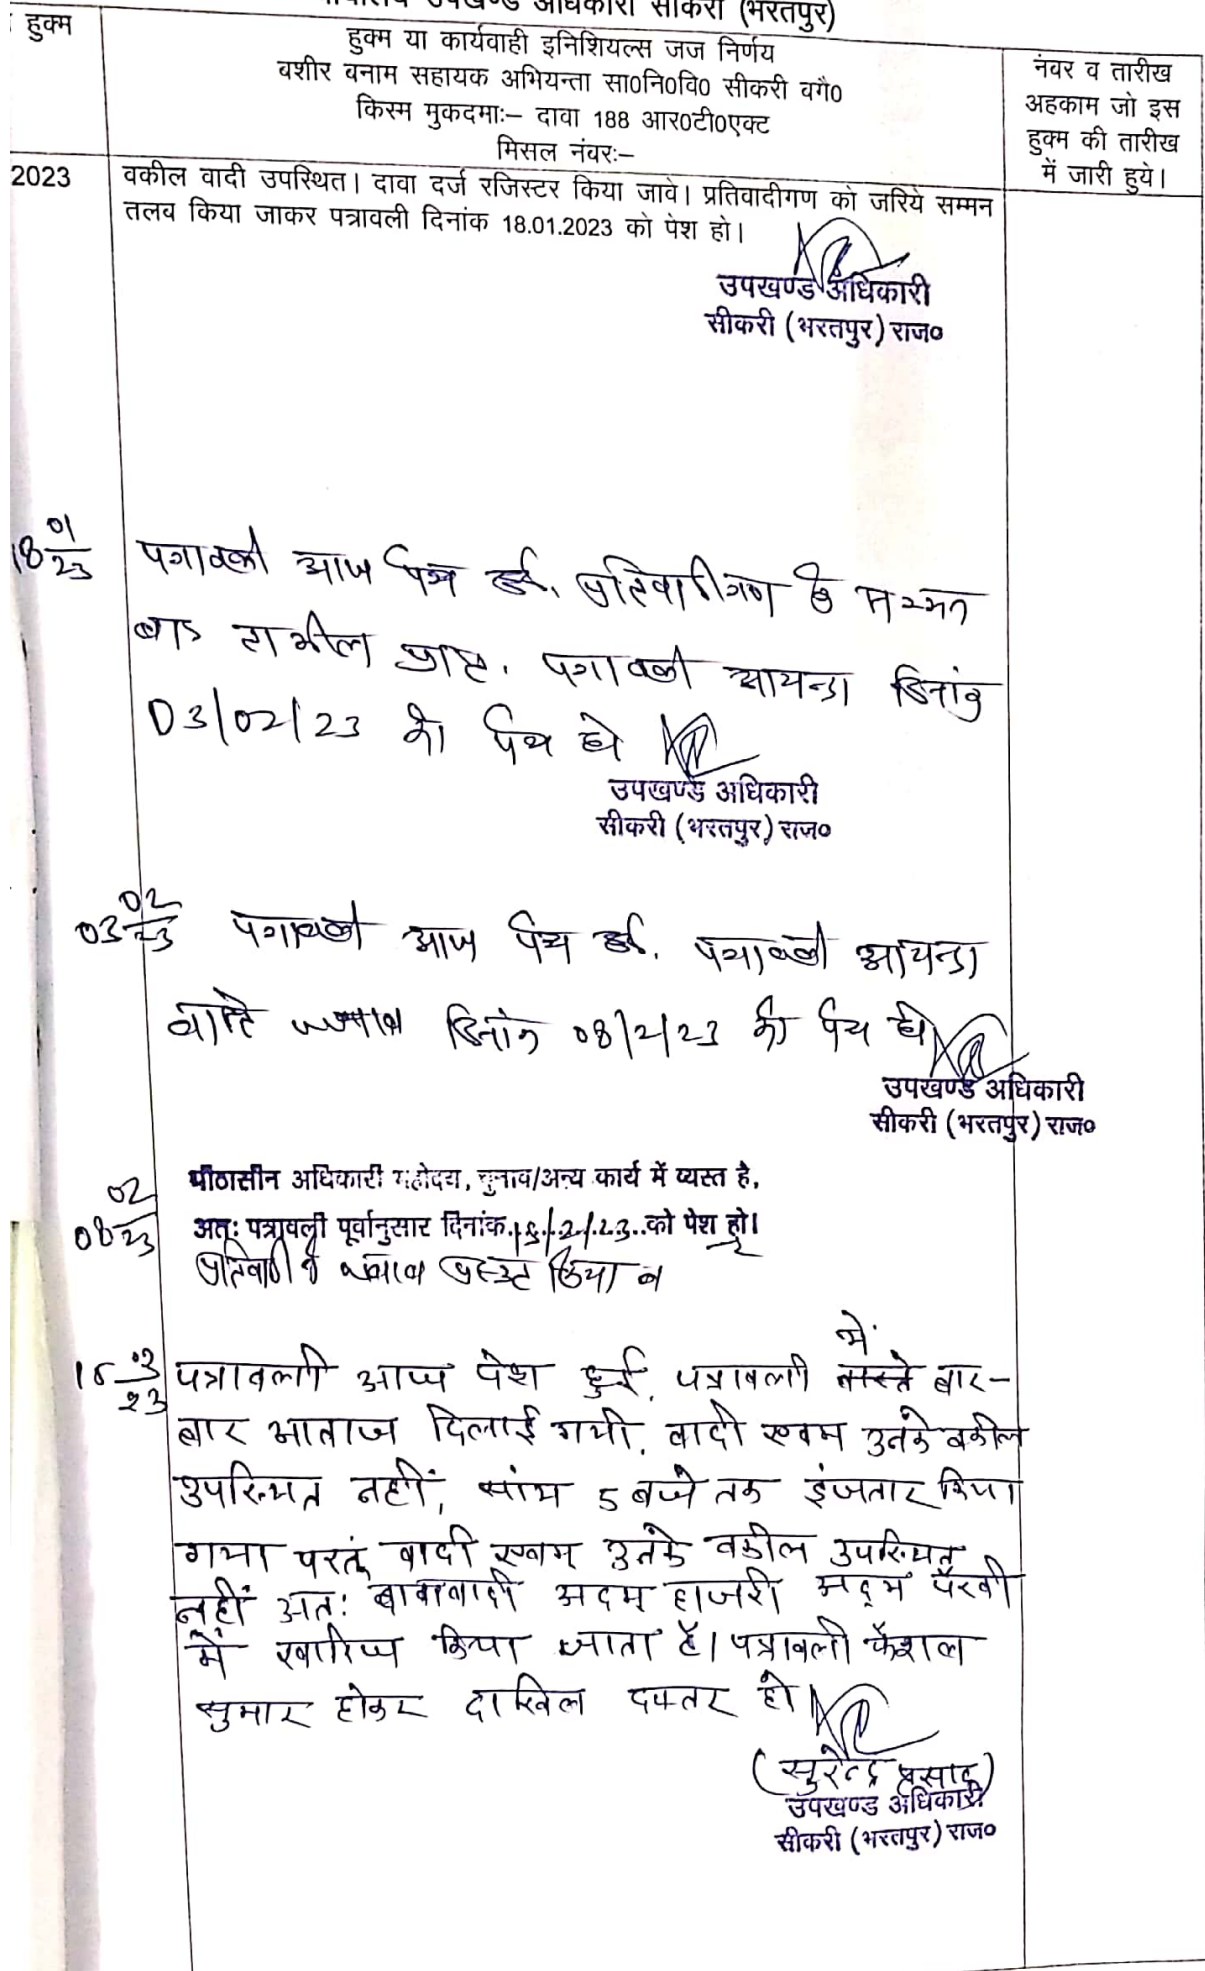 उपखण्ड अधिकारी सीकरी (भरतपुर)
हुक्म
हुक्म या कार्यवाही इनिशियल्स जज निर्णय
वशीर वनाम सहायक अभियन्ता सा०नि०वि० सीकरी वगै०
किस्म मुकदमाः– दावा 188 आर०टी०एक्ट
मिसल नंवरः–
नंवर व तारीख
अहकाम जो इस
हुक्म की तारीख
में जारी हुये।
2023
वकील वादी उपस्थित। दावा दर्ज रजिस्टर किया जावे। प्रतिवादीगण को जरिये सम्मन
तलव किया जाकर पत्रावली दिनांक 18.01.2023 को पेश हो।
उपखण्ड अधिकारी
सीकरी (भरतपुर) राज०
18 01/23 पत्रावली आज पेश हुई. प्रतिवादीगण के सम्मन
बाद तामील प्राप्त. पत्रावली आयन्दा दिनांक
03/02/23 को पेश हो
उपखण्ड अधिकारी
सीकरी (भरतपुर) राज०
03 02/23 पत्रावली आज पेश हुई. पत्रावली आयन्दा
वास्ते जवाब दिनांक 08/2/23 को पेश हो
उपखण्ड अधिकारी
सीकरी (भरतपुर) राज०
08 02/23
पीठासीन अधिकारी महोदय, चुनाव/अन्य कार्य में व्यस्त है,
अतः पत्रावली पूर्वानुसार दिनांक 15/2/23 को पेश हो।
प्रतिवादी ने जवाब प्रस्तुत किया व
पत्रावली आज पेश हुई. पत्रावली में वास्ते बार–
बार आवाज दिलाई गयी. वादी एवम उनके वकील
उपस्थित नहीं, सांय 5 बजे तक इंजतार किया
गया परतूं वादी एवम् उनके वकील उपस्थित
नहीं अतः बावावादी अदम् हाजरी अदम् पैरवी
में खारिज किया जाता है। पत्रावली फैशल
सुमार होकर दाखिल दफ्तर हो
(सुरेन्द्र प्रसाद)
उपखण्ड अधिकारी
सीकरी (भरतपुर) राज०